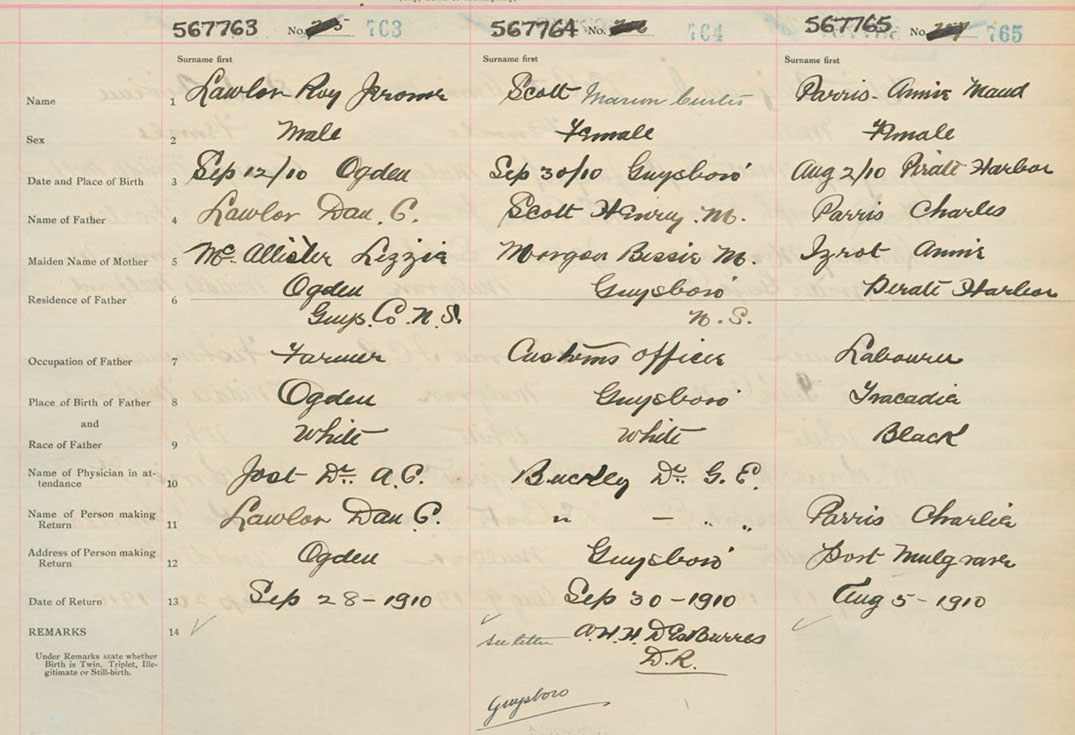 567763 No. 763 567764 No. 764 567765 No. 765
Surname first Surname first Surname first
Name 1 Lawlor Roy Jerome Scott Marion Curtis Parris Annie Maud
Sex 2 Male Female Female
Date and Place of Birth 3 Sep 12/10 Ogden Sep 30/10 Guysboro' Aug 2/10 Pirate Harbor
Name of Father 4 Lawlor Dan. C. Scott Henry M. Parris Charles
Maiden Name of Mother 5 McAllister Lizzie Morgan Bessie M. Izrot Annie
Residence of Father 6 Ogden Guysboro' Pirate Harbor
Guys. Co. N.S. N.S.
Occupation of Father 7 Farmer Customs Officer Labourer
Place of Birth of Father 8 Ogden Guysboro' Tracadie
and
Race of Father 9 White White Black
Name of Physician in at-
tendance 10 Jost Dr. A.C. Buckley Dr. G.E.
Name of Person making
Return 11 Lawlor Dan C. " — " " Parris Charlie
Address of Person making
Return 12 Ogden Guysboro' Port Mulgrave
Date of Return 13 Sep 28-1910 Sep 30-1910 Aug 5-1910
REMARKS 14 ✓ see letter A.H.H. DesBarres ✓
D.R.
Under Remarks state whether
Birth is Twin, Triplet, Ille-
gitimate or Still-birth.
Guysboro